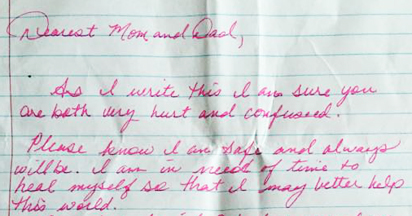 Dearest Mom and Dad,
As I write this I am sure you
are both very hurt and confused.
Please know I am safe and always
will be. I am in need of time to
heal myself so that I may better help
this world.